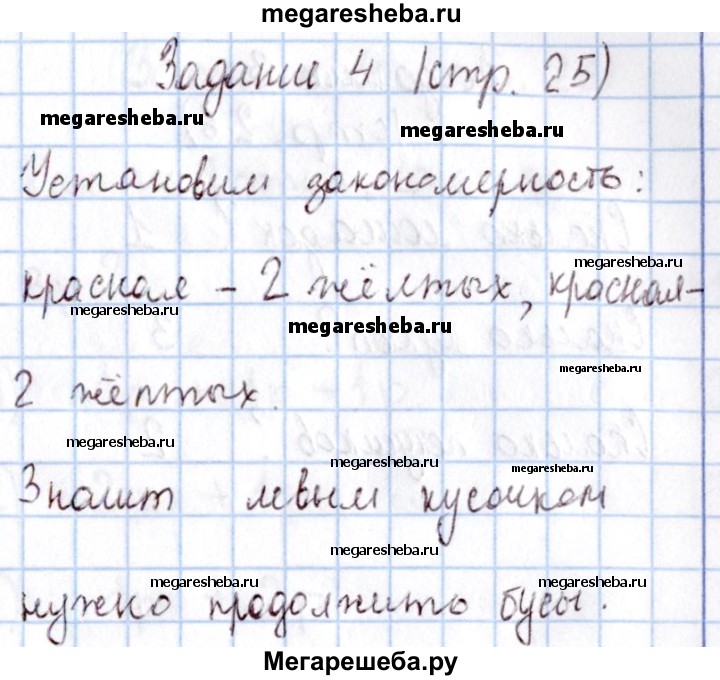 megaresheba.ru
Задание 4 (стр. 25)
megaresheba.ru
megaresheba.ru
Установим закономерность:
megaresheba.ru
красная – 2 жёлтых, красная –
megaresheba.ru
megaresheba.ru
megaresheba.ru
2 жёлтых.
megaresheba.ru
megaresheba.ru
megaresheba.ru
Значит левым кусочком
megaresheba.ru
megaresheba.ru
megaresheba.ru
нужно продолжить бусы.
Мегарешеба.ру